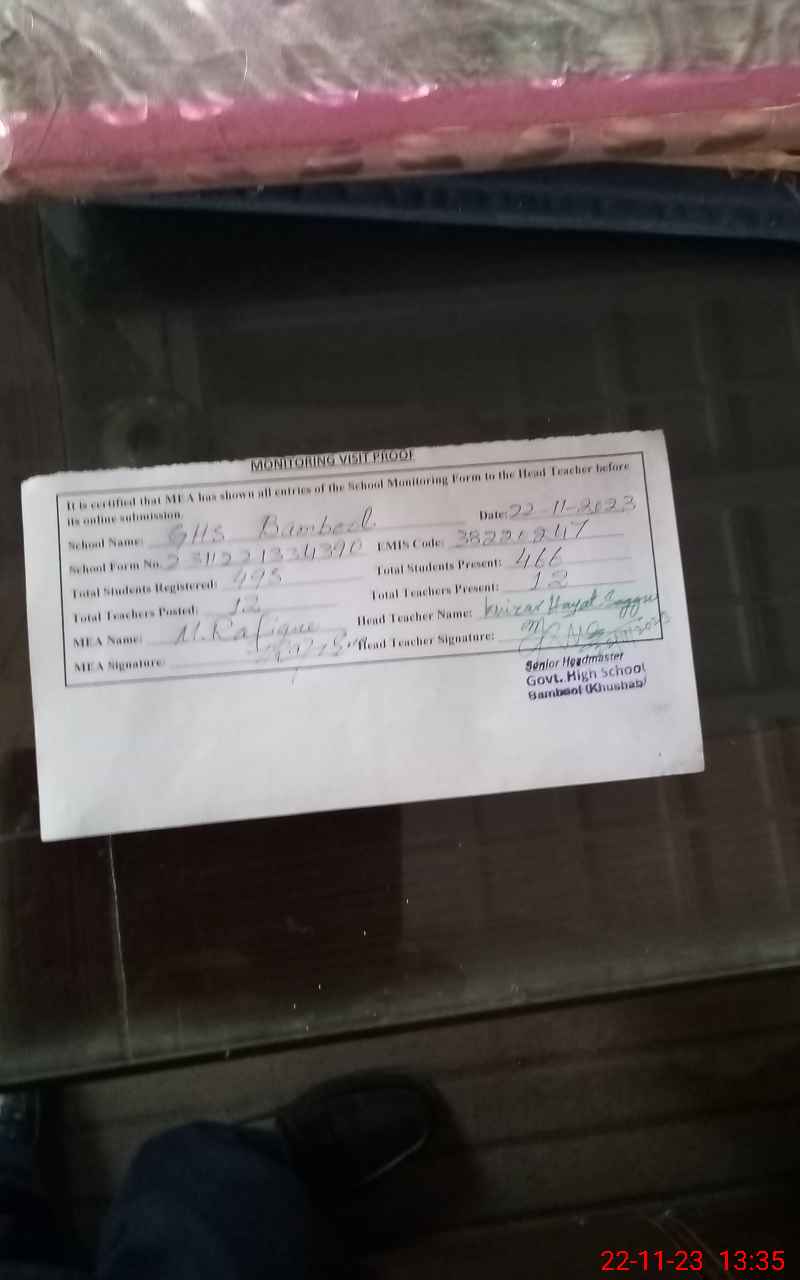 MONITORING VISIT PROOF
It is certified that MEA has shown all entries of the School Monitoring Form to the Head Teacher before
its online submission. Date: 22-11-2023
School Name: GHS Bambool. EMIS Code: 38220247
School Form No. 2311221334390 Total Students Present: 466
Total Students Registered: 495 Total Teachers Present: 12
Total Teachers Posted: 12 Head Teacher Name: Hayat
MEA Name: M. Rafique Head Teacher Signature:
MEA Signature:
Senior Headmaster
Govt. High School
Bambool (Khushab)
22-11-23 13:35